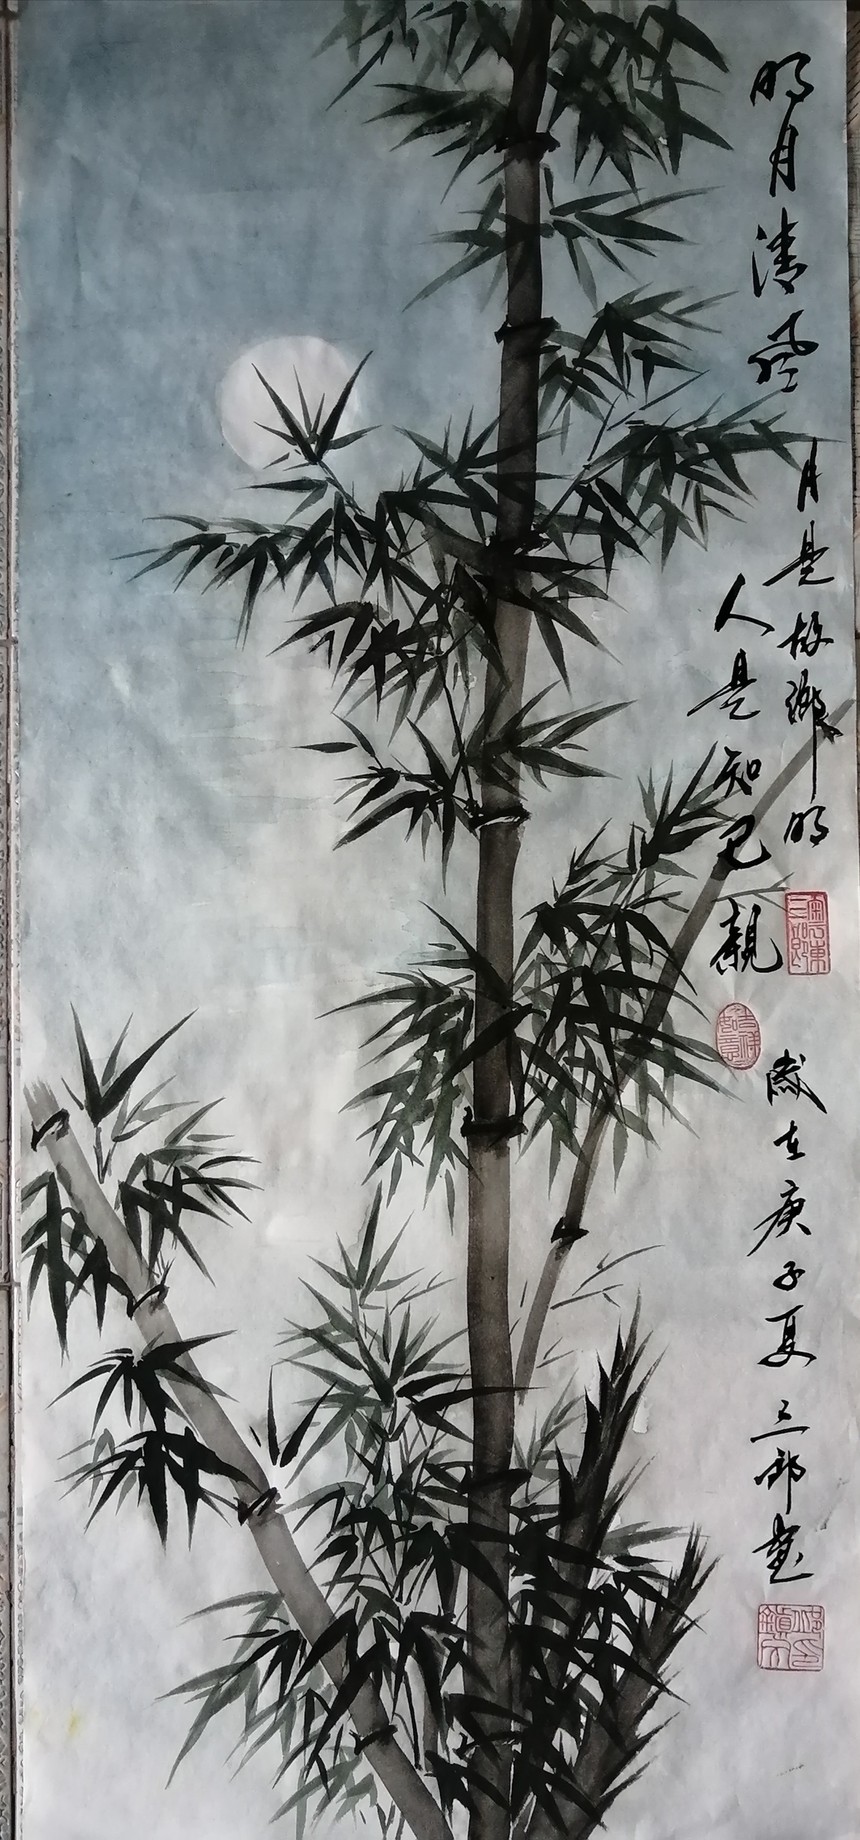 明月清风
月是故鄉明
人是知己親
歲在庚子夏三郎画